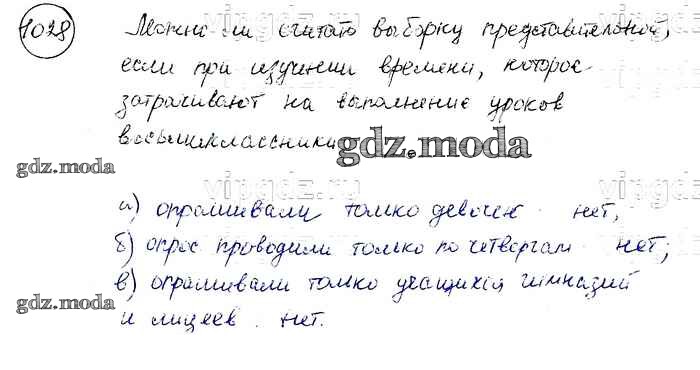 1028
Можно ли считать выборку представительной,
если при изучении времени, которое
затрачивают на выполнение уроков
восьмиклассники
gdz.moda
gdz.moda
а) опрашивали только девочек нет,
б) опрос проводили только по четвергам нет;
в) опрашивали только учащихся гимназий
gdz.moda
и лицеев. нет.